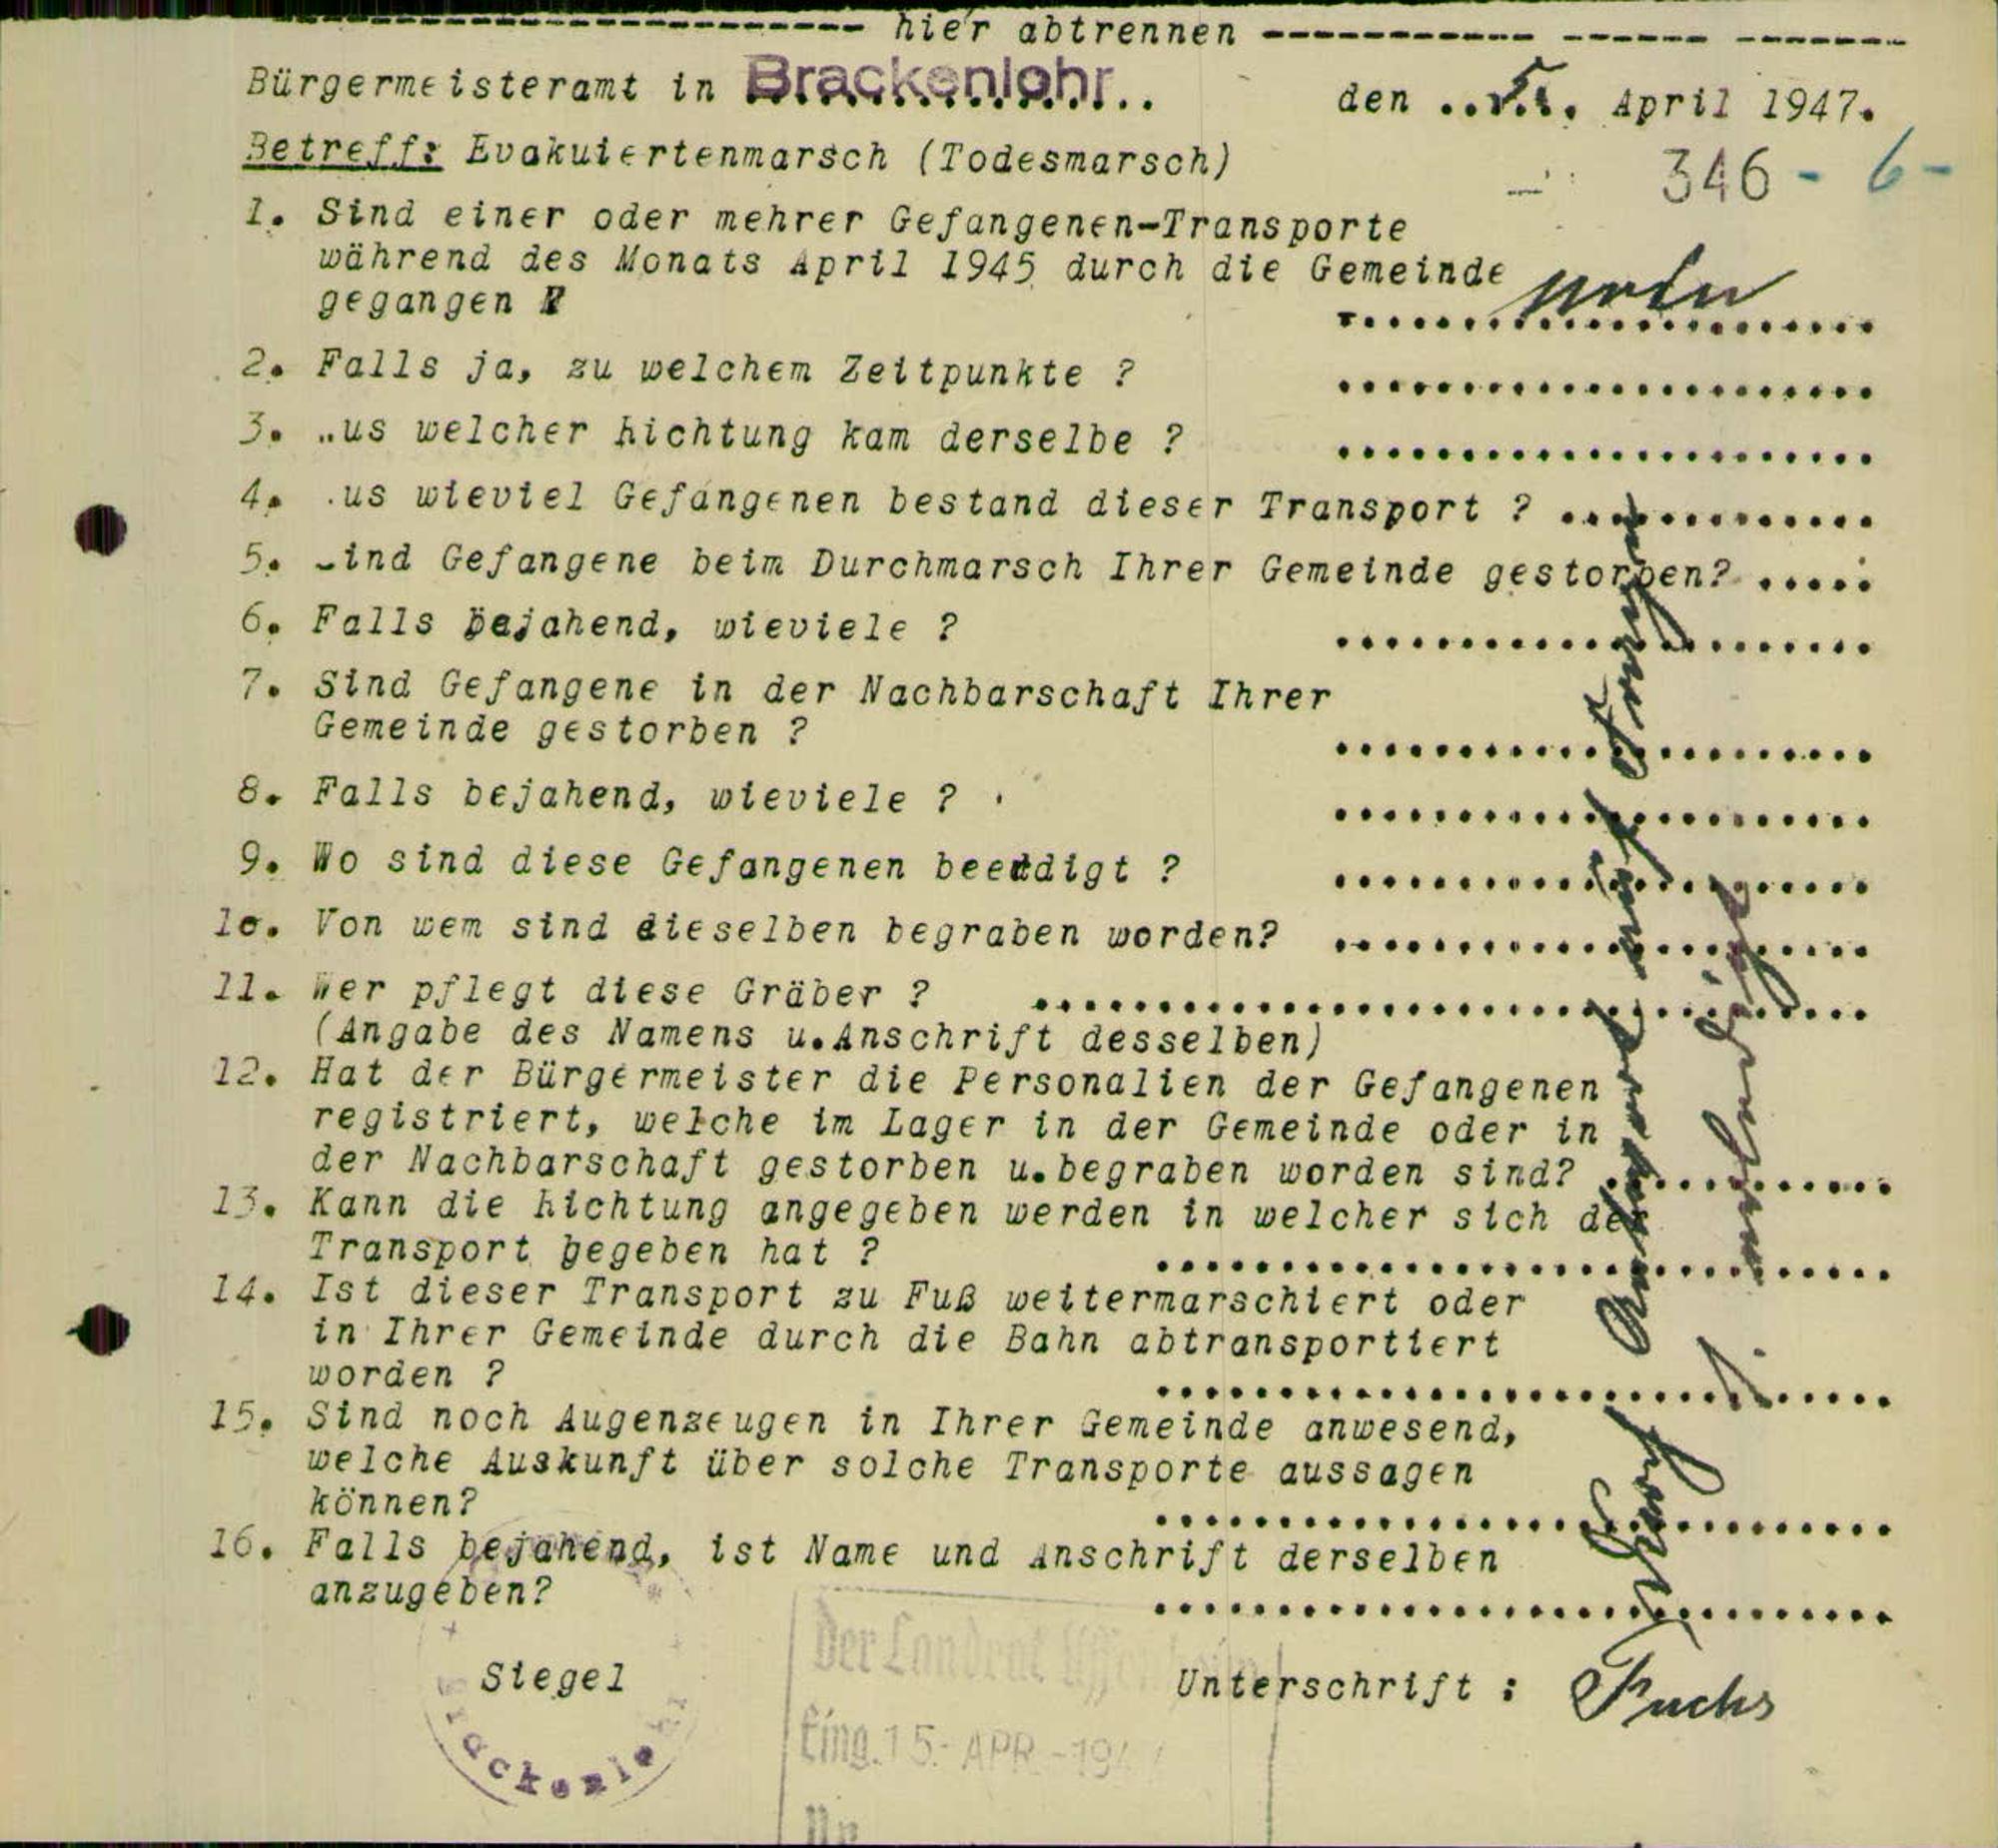 hier abtrennen
Bürgermeisteramt in Brackenlohr den ..5.. April 1947.
Betreff: Evakuiertenmarsch (Todesmarsch)
346 - 6 -
1. Sind einer oder mehrer Gefangenen-Transporte
während des Monats April 1945 durch die Gemeinde
gegangen ? nein
2. Falls ja, zu welchem Zeitpunkte ?
3. ..us welcher Richtung kam derselbe ?
4. .us wieviel Gefangenen bestand dieser Transport ?
5. Sind Gefangene beim Durchmarsch Ihrer Gemeinde gestorben?
6. Falls bejahend, wieviele ?
7. Sind Gefangene in der Nachbarschaft Ihrer
Gemeinde gestorben ?
8. Falls bejahend, wieviele ?
9. Wo sind diese Gefangenen beerdigt ?
10. Von wem sind dieselben begraben worden?
11. Wer pflegt diese Gräber ?
(Angabe des Namens u.Anschrift desselben)
12. Hat der Bürgermeister die Personalien der Gefangenen
registriert, welche im Lager in der Gemeinde oder in
der Nachbarschaft gestorben u.begraben worden sind?
13. Kann die Richtung angegeben werden in welcher sich der
Transport begeben hat ?
14. Ist dieser Transport zu Fuß weitermarschiert oder
in Ihrer Gemeinde durch die Bahn abtransportiert
worden ?
15. Sind noch Augenzeugen in Ihrer Gemeinde anwesend,
welche Auskunft über solche Transporte aussagen
können?
16. Falls bejahend, ist Name und Anschrift derselben
anzugeben?
Antwort auf Fragen
erledigt
Siegel
Brackenlohr
Der Landrat Uffenheim
Eing. 15. APR. 194
Nr
Unterschrift : Fuchs